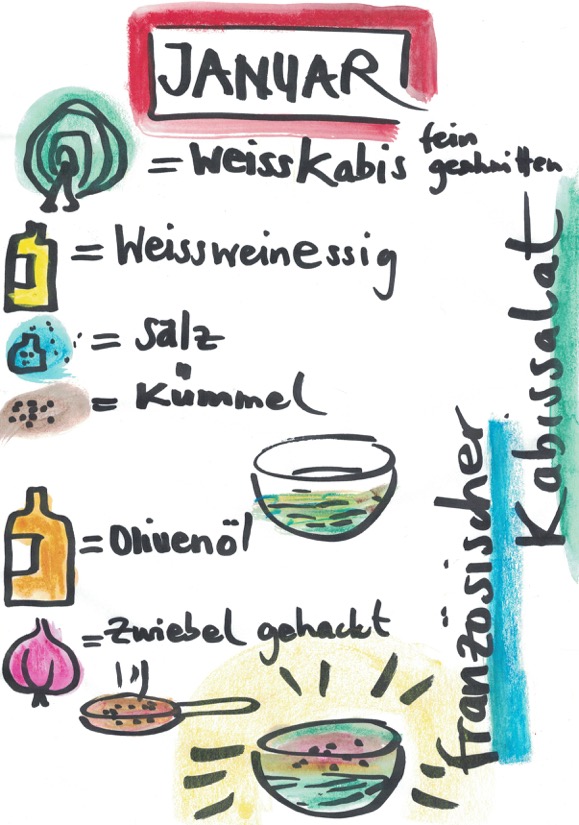 JANUAR
= Weisskabis fein
geschnitten
= Weissweinessig
= Salz
= Kümmel
= Olivenöl
= Zwiebel gehackt
französischer
Kabissalat